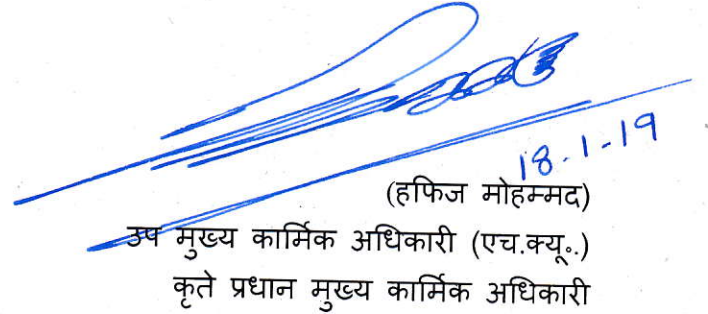 18-1-19
(हफिज मोहम्मद)
उप मुख्य कार्मिक अधिकारी (एच.क्यू.)
कृते प्रधान मुख्य कार्मिक अधिकारी